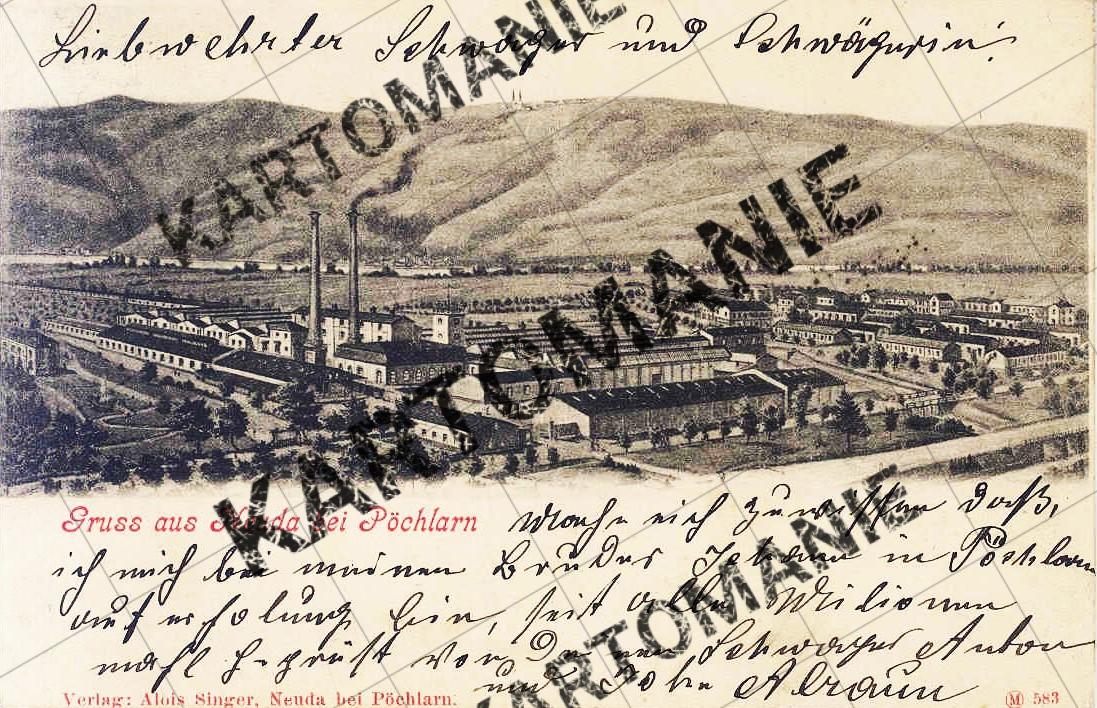 Liebwehrter Schwager und Schwägerin!
KARTOMANIE
KARTOMANIE
Gruss aus Neuda bei Pöchlarn
Mache eich zuwissen daß,
ich mich bei meinen Bruder Johann in Pöchlarn
auf erholung bin, seit alle Milionen
mahl gegrüßt von den Schwager Anton
und
KARTOMANIE
Verlag: Alois Singer, Neuda bei Pöchlarn.
M 583